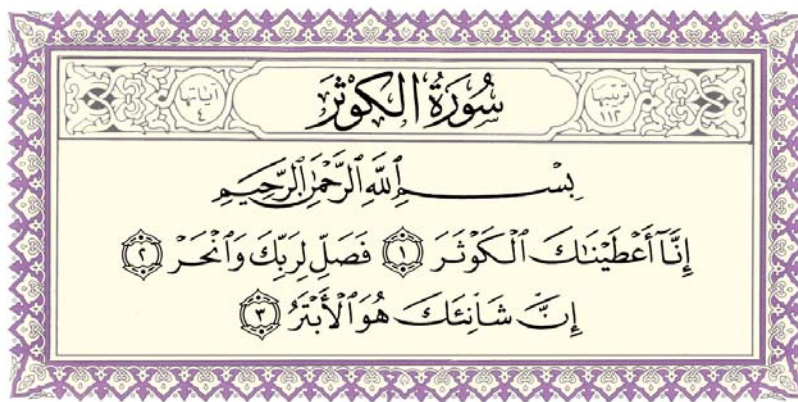 ترتيبها ١١٢ سُورَةُ الْكَوْثَرَ آياتها ٤
بِسْمِ ٱللَّهِ ٱلرَّحْمَٰنِ ٱلرَّحِيمِ
إِنَّآ أَعْطَيْنَٰكَ ٱلْكَوْثَرَ ١ فَصَلِّ لِرَبِّكَ وَٱنْحَرْ ٢
إِنَّ شَانِئَكَ هُوَ ٱلْأَبْتَرُ ٣